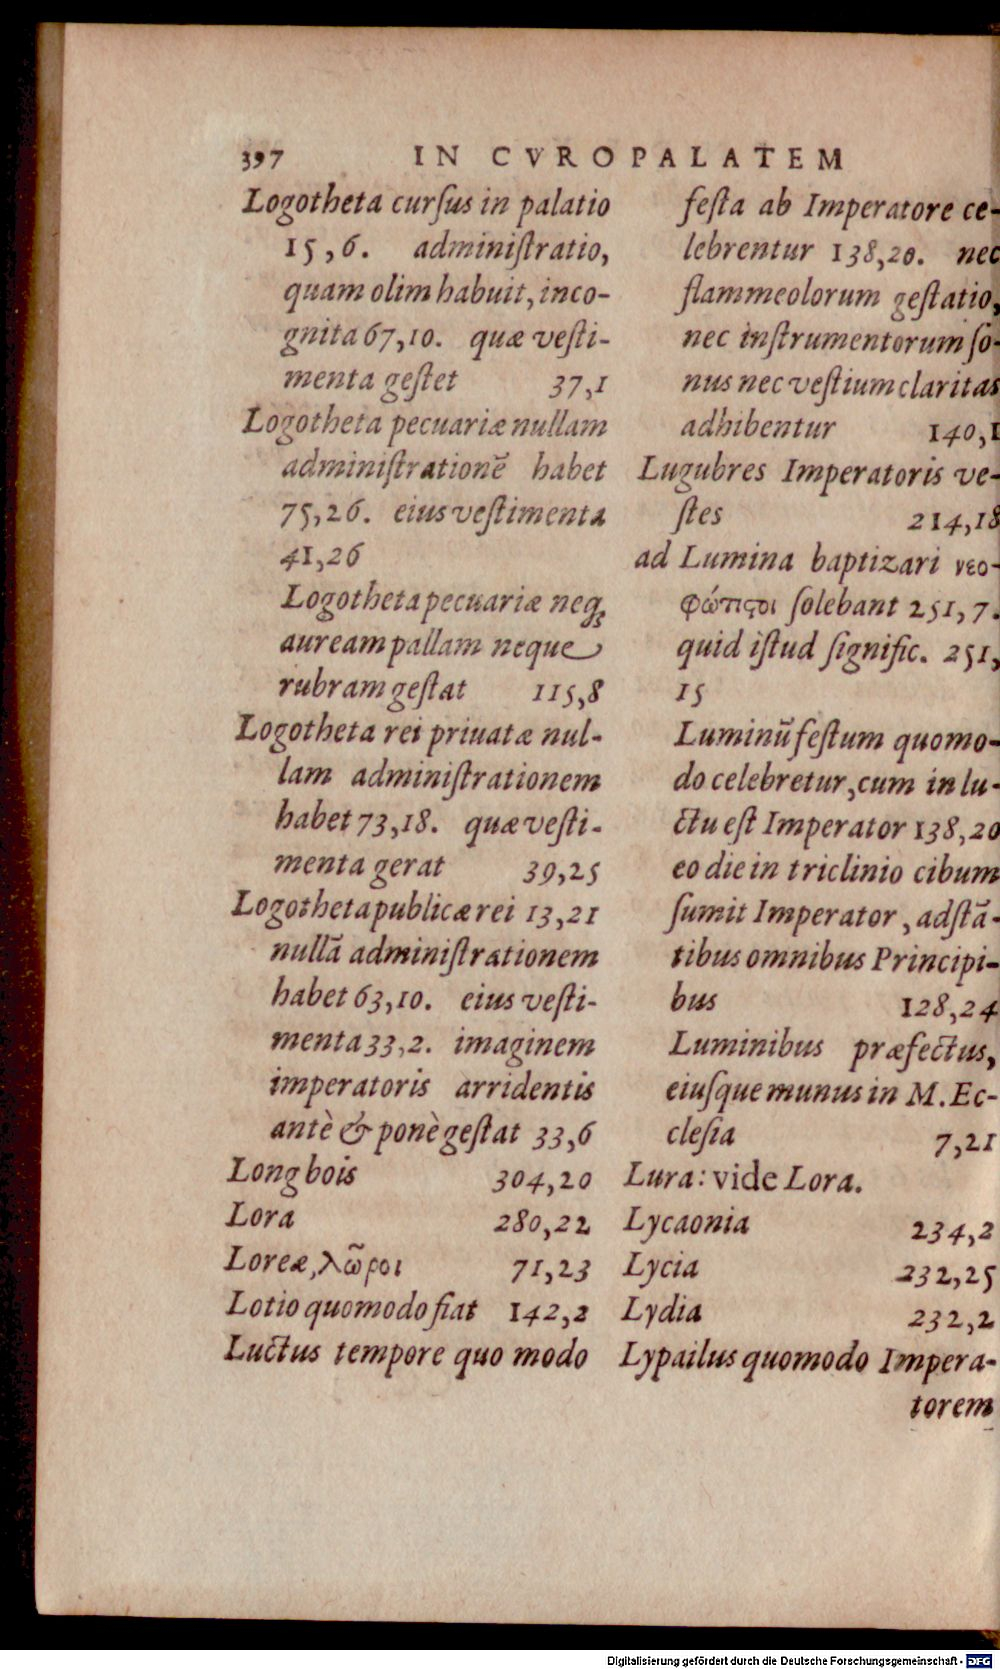 397 IN CVROPALATEM
Logotheta curſus in palatio
15,6. adminiſtratio,
quam olim habuit, inco-
gnita 67,10. quæ veſti-
menta geſtet 37,1
Logotheta pecuariæ nullam
adminiſtrationē habet
75,26. eius veſtimenta
41,26
Logotheta pecuariæ neqȝ
auream pallam neque
rubram geſtat 115,8
Logotheta rei priuatæ nul-
lam adminiſtrationem
habet 73,18. quæ veſti-
menta gerat 39,25
Logotheta publicæ rei 13,21
nullā adminiſtrationem
habet 63,10. eius veſti-
menta 33,2. imaginem
imperatoris arridentis
antè & ponè geſtat 33,6
Longbois 304,20
Lora 280,22
Loreæ, λῶροι 71,23
Lotio quomodo fiat 142,2
Luctus tempore quo modo
feſta ab Imperatore ce-
lebrentur 138,20. nec
flammeolorum geſtatio,
nec inſtrumentorum ſo-
nus nec veſtium claritas
adhibentur 140,1
Lugubres Imperatoris ve-
ſtes 214,18
ad Lumina baptizari νεο-
φώτιϛοι ſolebant 251,7.
quid iſtud ſignific. 251,
15
Luminū feſtum quomo-
do celebretur, cum in lu-
ctu eſt Imperator 138,20
eo die in triclinio cibum
ſumit Imperator, adſtā-
tibus omnibus Principi-
bus 128,24
Luminibus præfectus,
eiuſque munus in M. Ec-
cleſia 7,21
Lura: vide Lora.
Lycaonia 234,2
Lycia 232,25
Lydia 232,2
Lypailus quomodo Impera-
torem
Digitalisierung gefördert durch die Deutsche Forschungsgemeinschaft - DFG